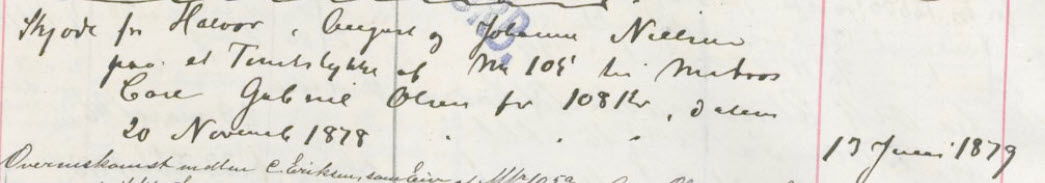 Skjøde fra Halvor, August og Johanne Nielsen
paa et Tomtestykke af No 105 til Matros
Carl Gabriel Olsen for 108 Kr, datum
20 Novemb 1878 " " " 13 Juni 1879
Overenskomst mellem C. Eriksen, som Eier af